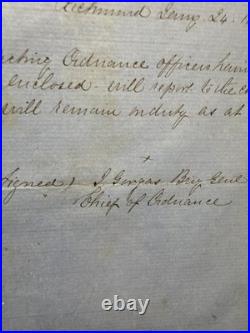 Richmond Jany. 24. 1
cting Ordnance officers ham
enclosed - will report to the c
will remain on duty as at
Signed) J Gorgas Brig Genl
Chief of Ordnance